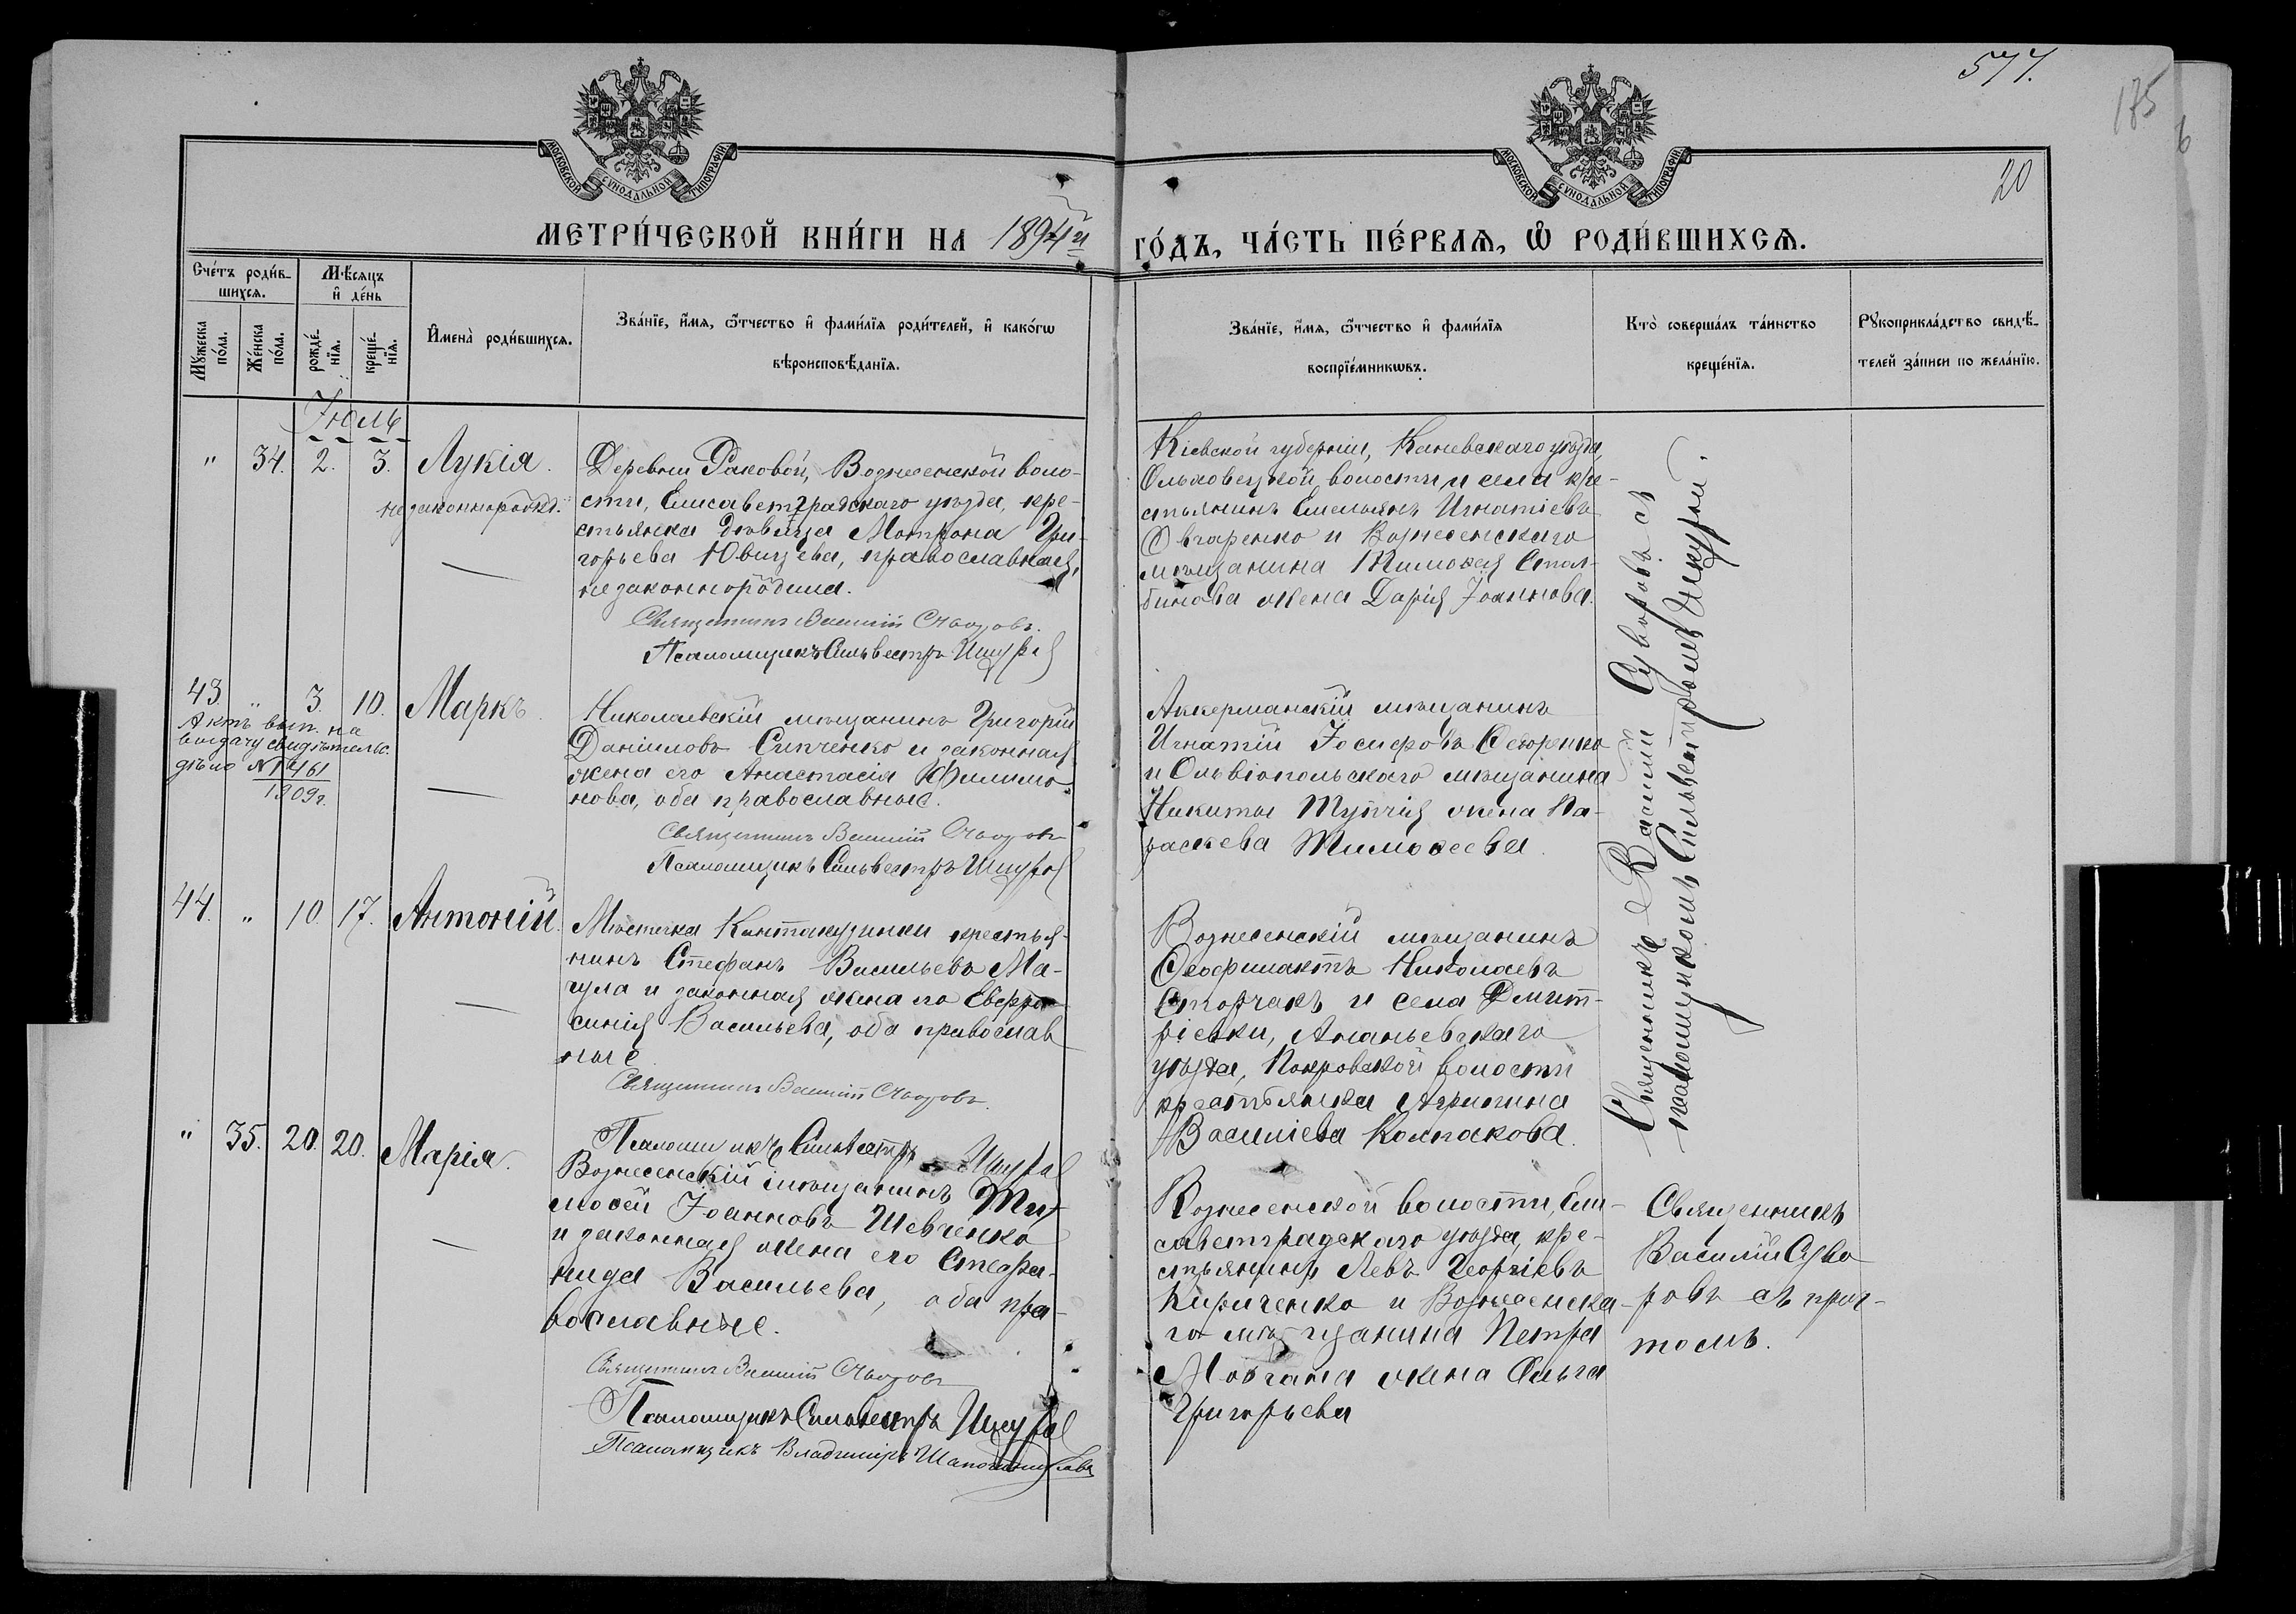 577.
175
6
20
МОСКОВСКОЙ СѴНОДАЛЬНОЙ ТИПОГРАФІИ
МОСКОВСКОЙ СѴНОДАЛЬНОЙ ТИПОГРАФІИ
МЕТРИ́ЧЕСКОЙ КНИ́ГИ НА 1894й
ГО́ДЪ, ЧА́СТЬ ПЕ́РВАѦ, Ѡ҆ РОДИ́ВШИХСѦ.
Сче́тъ роди́в-
шихсѧ.
Мѣ́сѧцъ
и҆ де́нь
Мꙋ́жеска
по́ла.
Же́нска
по́ла.
рожде́-
нїѧ.
креще́-
нїѧ.
И҆мена̀ роди́вшихсѧ.
Зва́нїе, и҆́мѧ, ѻ҆́тчество и҆ фами́лїѧ роди́телей, и҆ како́гѡ
вѣроисповѣ́данїѧ.
Зва́нїе, и҆́мѧ, ѻ҆́тчество и҆ фами́лїѧ
воспрїе́мникѡвъ.
Кто̀ соверша́лъ та́инство
креще́нїѧ.
Рꙋкоприкла́дство свидѣ́-
телей за́писи по жела́нїю.
Іюль
" 34. 2. 3. Лукія.
незаконнорожд.
Деревни Раковой, Вознесенской воло-
сти, Елисаветградскаго уѣзда, кре-
стьянка дѣвица Мотрона Гри-
горьева Ювицева, православная,
незаконнородила.
Священникъ Василій Суворовъ.
Псаломщикъ Сильвестръ
Кіевской губерніи, Каневскаго уѣзда,
Ольховецкой волости и села кре-
стьянинъ Емельянъ Игнатіевъ
Овчаренко и Вознесенскаго
мѣщанина Тимоѳея Стол-
бинова жена Дарія Іоаннова.
43. " 3. 10. Маркъ.
Актъ вып. на
выдачу свидѣтельс.
дѣло № 1461
1909 г.
Николаевскій мѣщанинъ Григорій
Даніиловъ Сипченко и законная
жена его Анастасія Филимо-
нова, оба православные.
Священникъ Василій Суворовъ
Псаломщикъ Сильвестръ
Аккерманскій мѣщанинъ
Игнатій Іосифовъ Ѳедоренко
и Ольвіопольскаго мѣщанина
Никиты Тупчія жена Па-
раскева Тимоѳеева.
44. " 10. 17. Антоній.
Мѣстечка Кантакузинки крестья-
нинъ Стефанъ Васильевъ Ма-
гула и законная жена его Евфро-
синія Васильева, оба православ-
ные
Священникъ Василій Суворовъ.
Псаломщикъ Сильвестръ
Вознесенскій мѣщанинъ
Ѳеофилактъ Николаевъ
Сторчакъ и села Дмит-
ріевки, Ананьевскаго
уѣзда, Покровской волости
крестьянка Агрипина
Василіева Колпакова.
Священникъ Василій Суворовъ съ
псаломщикомъ Сильвестромъ
" 35. 20. 20. Марія.
Вознесенскій мѣщанинъ Ти-
моѳей Іоанновъ Шевченко
и законная жена его Стефа-
нида Васильева, оба пра-
вославные.
Священникъ Василій Суворовъ
Псаломщикъ Сильвестръ
Псаломщикъ Владиміръ
Вознесенской волости, Ели-
саветградскаго уѣзда, кре-
стьянинъ Левъ Георгіевъ
Кириченко и Вознесенска-
го мѣщанина Петра
Мовчана жена Ольга
Григорьева
Священникъ
Василій Суво-
ровъ съ прич-
томъ.